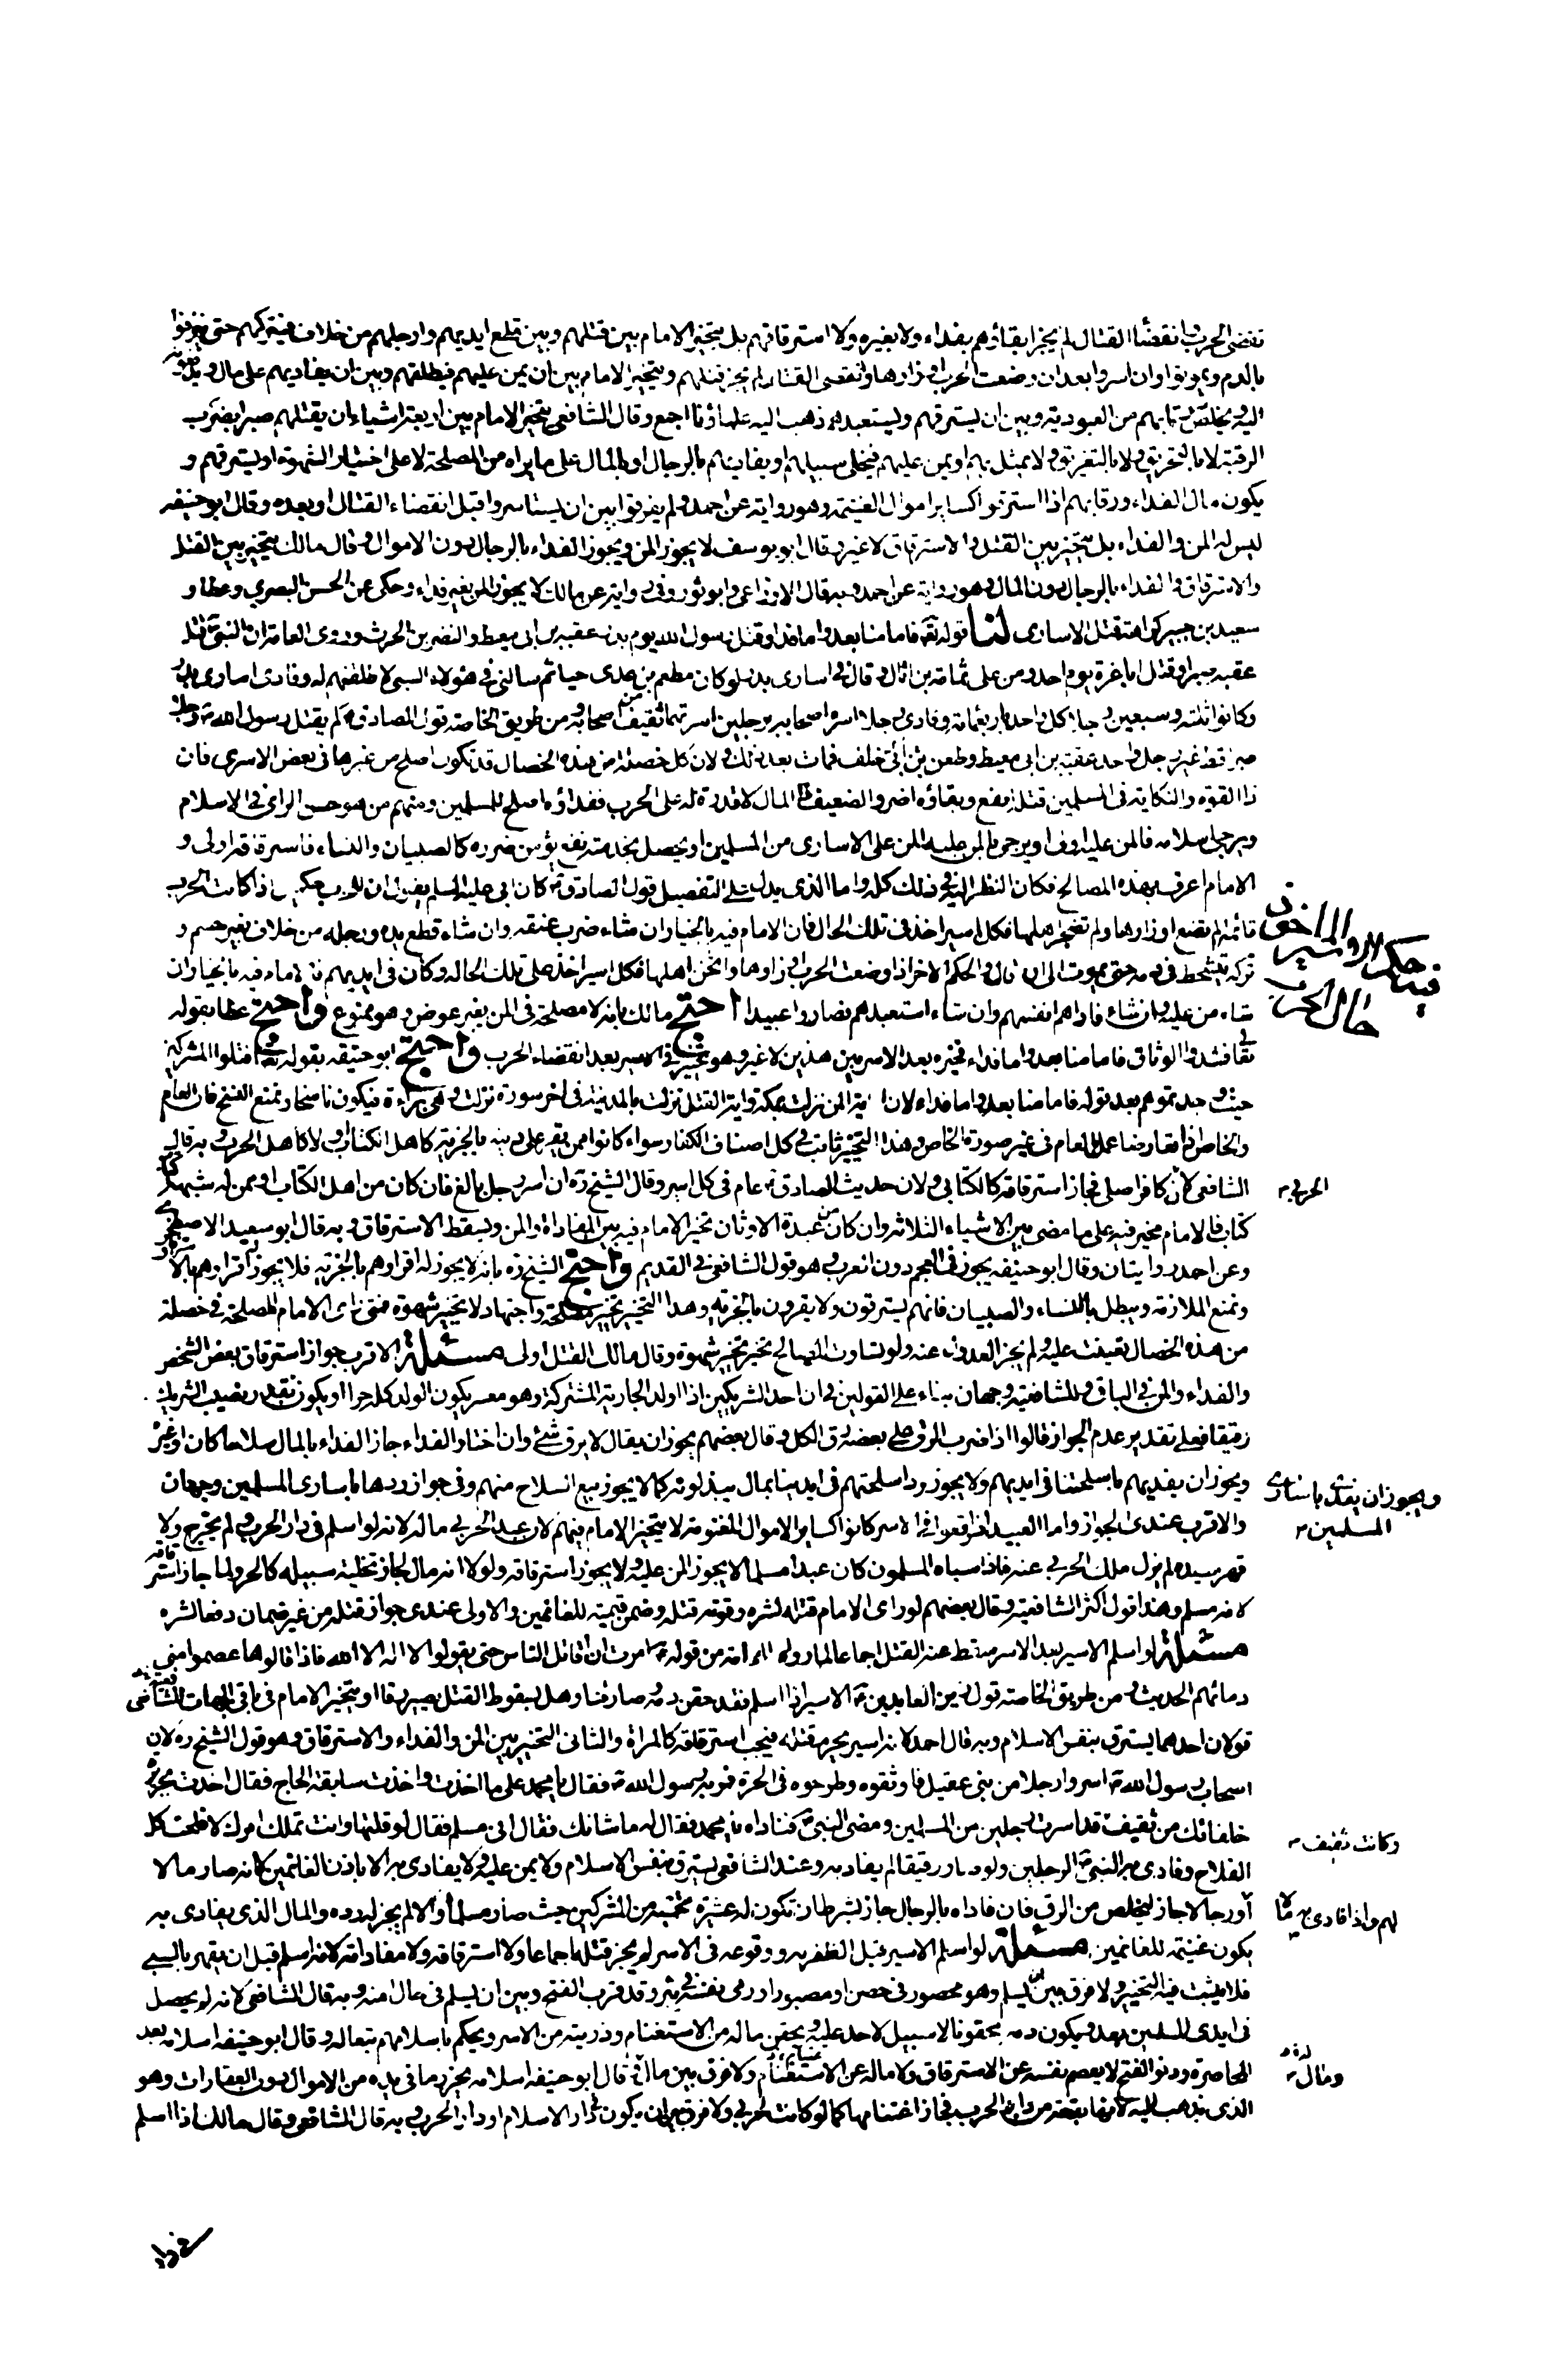 تنقضى الحرب انقضاء القتال لم يجز ابقاؤهم بفداء ولا بغيره ولا استرقاقهم بل يتخير الامام بين قتلهم وبين قطع ايديهم وارجلهم من خلاف فيتركهم حتى ينزفوا
بالدم ويموتوا وان اسروا بعد ان وضعت الحرب اوزارها وانقضى القتال لم يجز قتلهم ويتخير الامام بين ان يمن عليهم فيطلقهم وبين ان يفاديهم على مال
اليه ويخلص رقابهم من العبودية وبين ان يسترقهم ويستعبدهم ذهب اليه علماؤنا اجمع وقال الشافعى يتخير الامام بين اربعة اشياء ان يقتلهم صبرا بضرب
الرقبة لا بالتحريق ولا بالتغريق ولا يمثل بهم او يمن عليهم فيخلى سبيلهم او يفاديهم بالرجال او بالمال على ما يراه من المصلحة لا على اختيار الشهوة او يسترقهم و
يكون مال الفداء ورقابهم اذا استرقوا كساير اموال الغنيمة وهو رواية عن احمد ولم يفرقوا بين ان يستاسروا قبل انقضاء القتال او بعده وقال ابو حنيفه
ليس له المن والفداء بل يتخير بين القتل والاسترقاق لا غير وقال ابو يوسف لا يجوز المن ويجوز الفداء بالرجال دون الاموال وقال مالك يتخير بين القتل
والاسترقاق والفداء بالرجال دون المال وهو رواية عن احمد وبه قال الاوزاعى وابو ثور وفى رواية عن مالك لا يجوز المن بغير فداء وحكى عن الحسن البصري وعطا و
سعيد بن جبير كراهة قتل الاسارى لنا قوله تعالى فاما منا بعد واما فداء وقتل رسول الله يوم بدر عقبة بن ابى معيط والنضر بن الحرث وروى العامة ان النبى ص قتل
عقبه صبرا وقتل ابا عزة يوم احد ومن على ثمامة بن اثال وقال فى اسارى بدر لو كان مطعم بن عدى حيا ثم سالنى فى هؤلاء السبى لاطلقتهم له وفادى اسارى بدر
وكانوا ثلثة وسبعين رجلا كل واحد باربعمائة وفادى رجلا اسره اصحابه برجلين اسرتهما ثقيف من اصحابه ومن طريق الخاصة قول الصادق ع لم يقتل رسول الله ص رجلا
صبرا قط غير رجل واحد عقبة بن ابى معيط وطعن ابن ابى خلف فمات بعد ذلك ولان كل خصلة من هذه الخصال قد تكون اصلح من غيرها فى بعض الاسرى فان
ذا القوة والنكاية فى المسلمين قتله انفع وبقاؤه اضر والضعيف ذا المال لا قدرة له على الحرب ففداؤه اصلح للمسلمين ومنهم من هو حسن الراى فى الاسلام
ويرجى اسلامه فالمن عليه اوفى او يرجى بالمن عليه المن على الاسارى من المسلمين او يحصل بخدمته نفع ويؤمن ضرره كالصبيان والنساء فاسترقاقه اولى و
الامام اعرف بهذه المصالح فكان النظر اليه فى ذلك كله واما الذى يدل على التفصيل قول الصادق ع كان ابى عليه السلم يقول ان للحرب حكمين اذا كانت الحرب
قائمة لم تضع اوزارها ولم تضجر اهلها فكل اسير اخذ فى تلك الحال فان الامام فيه بالخيار ان شاء ضرب عنقه وان شاء قطع يده ورجله من خلاف بغير حسم و
تركه يتشحط فى دمه حتى يموت الى ان قال والحكم الاخر اذا وضعت الحرب اوزارها واثخن اهلها فكل اسير اخذ على تلك الحاله وكان فى ايديهم فالامام فيه بالخيار ان
شاء من عليه وان شاء فاداهم انفسهم وان شاء استعبدهم فصاروا عبيدا احتج مالك بانه لا مصلحة فى المن بغير عوض وهو ممنوع واحتج عطا بقوله
تعالى فشدوا الوثاق فاما منا بعد واما فداء فخيره بعد الاسر بين هذين لا غير وهو يتخير فى الاسير بعد انقضاء الحرب واحتج ابو حنيفه بقوله تعالى اقتلوا المشركين
حيث وجدتموهم بعد قوله فاما منا بعد واما فداء لان اية المن نزلت بمكة واية القتل نزلت بالمدينة فى اخر سورة نزلت وهى براءة فيكون ناسخا ونمنع النسخ فان العام
والخاص اذا تعارضا عمل بالعام فى غير صورة الخاص وهذا التخيير ثابت فى كل اصناف الكفار سواء كانوا ممن يقر على دينه بالجزية كاهل الكتاب او لا كاهل الحرب وبه قال
الشافعى لانه كافر اصلى فجاز استرقاقه كالكتابى ولان حديث الصادق ع عام فى كل اسير وقال الشيخ ره ان اسر رجل بالغ فان كان من اهل الكتاب او ممن له شبهة
كتاب فالامام مخير فيه على ما مضى بين الاشياء الثلاثة وان كان من عبدة الاوثان تخير الامام فيه بين المفاداة والمن ويسقط الاسترقاق وبه قال ابو سعيد الاصطخرى
وعن احمد روايتان وقال ابو حنيفه يجوز فى العجم دون العرب وهو قول الشافعى فى القديم واحتج الشيخ ره بانه لا يجوز له اقرارهم بالجزية فلا يجوز اقرارهم بالاسترقاق
ونمنع الملازمة ويبطل بالنساء والصبيان فانهم يسترقون ولا يقرون بالجزية وهذا التخيير تخيير مصلحة واجتهاد لا تخيير شهوة فمتى راى الامام المصلحة فى خصلة
من هذه الخصال تعينت عليه ولم يجز العدول عنه ولو تساوت المصالح تخير تخيير شهوة وقال مالك القتل اولى مسئلة الاقرب جواز استرقاق بعض الشخص
والفداء والمن فى الباقى وللشافعية وجهان بناء على القولين فى ان احد الشريكين اذا اولد الجارية المشتركة وهو معسر يكون الولد كله حرا او يكون بقدر نصيب الشريك
رقيقا فعلى تقدير عدم الجواز قالوا اذا ضرب الرق على بعضه رق الكل وقال بعضهم يجوز ان يقال لا يرق شئ وان اختار الفداء جاز الفداء بالمال سلاحا كان او غيره
ويجوز ان يفديهم باسلحتنا فى ايديهم ولا يجوز رد اسلحتهم فى ايدينا بمال يبذلونه كما لا يجوز بيع السلاح منهم وفى جواز ردها باسارى المسلمين وجهان
والاقرب عندى الجواز واما العبيد اذا وقعوا فى الاسر كانوا كساير الاموال المغنومة لا يتخير الامام فيهم لان عبد الحربى ماله لانه لو اسلم فى دار الحرب ولم يخرج ولا
قهر سيده لم يزل ملك الحربى عنه فاذا سباه المسلمون كان عبدا مسلما لا يجوز المن عليه ولا يجوز استرقاقه ولولا انه مال لجاز تخلية سبيله كالحر ولما جاز استرقاقه
لانه مسلم وهذا قول اكثر الشافعية وقال بعضهم لو راى الامام قتله لشره وقوته قتله وضمن قيمته للغانمين والاولى عندى جواز قتله من غير ضمان دفعا لشره
مسئلة لو اسلم الاسير بعد الاسر سقط عنه القتل اجماعا لما رواه العامة من قوله ع امرت ان اقاتل الناس حتى يقولوا لا اله الا الله فاذا قالوها عصموا منى
دمائهم الحديث ومن طريق الخاصة قول زين العابدين ع الاسير اذا اسلم فقد حقن دمه وصار فيئا وهل بسقوط القتل يصير رقا او يتخير الامام فى باقى الجهات للشافعى
قولان احدهما يسترق بنفس الاسلام وبه قال احمد لانه اسير يحرم قتله فيجب استرقاقه كالمراة والثانى التخيير بين المن والفداء والاسترقاق وهو قول الشيخ ره لان
اصحاب رسول الله ص اسروا رجلا من بنى عقيل فاوثقوه وطرحوه فى الحرة فمر به رسول الله ص فقال يا محمد على ما اخذت واخذت سابقة الحاج فقال اخذت بجريرة
حلفائك من ثقيف قد اسرت رجلين من المسلمين ومضى النبى ص فناداه يا محمد فقال له ما شانك فقال انى مسلم فقال لو قلتها وانت تملك امرك لافلحت كل
الفلاح وفادى به النبى ص الرجلين ولو صار رقيقا لم يفاد به وعند الشافعى يسترق بنفس الاسلام ولا يمن عليه ولا يفادى به الا باذن الغانمين لانه صار مالا
او رجالا جاز ليخلص من الرق فان فاداه بالرجال جاز بشرط ان تكون له عشيرة تحميه من المشركين حيث صار مسلما والا لم يجز له رده والمال الذى يفادى به
يكون غنيمة للغانمين مسئلة لو اسلم الاسير قبل الظفر به ووقوعه فى الاسر لم يجز قتله اجماعا ولا استرقاقه ولا مفاداته لانه اسلم قبل ان يقهر بالسبى
فلا يثبت فيه التخيير ولا فرق بين ان يسلم وهو محصور فى حصن او مصبور او رمى نفسه فى بئر وقد قرب الفتح وبين ان يسلم فى حال امنه وبه قال الشافعى لانه لم يحصل
فى ايدى المسلمين بعد ويكون دمه محقونا لا سبيل لاحد عليه ويحقن ماله من الاستغنام وذريته من الاسر ويحكم باسلامهم تبعا له وقال ابو حنيفه اسلامه بعد
المحاصرة ودنو الفتح لا يعصم نفسه عن الاسترقاق ولا ماله عن الاستغنام ولا فرق بين مال ومال وقال ابو حنيفه اسلامه يحرز ما فى يده من الاموال دون العقارات وهو
الذى نذهب اليه لانها بقعة من دار الحرب فجاز اغتنامها كما لو كانت لحربى ولا فرق بين ان يكون فى دار الاسلام او دار الحرب وبه قال الشافعى وقال مالك اذا اسلم
فى حكم الاسير الماخوذ
حال الحرب
الحربى
ويجوز ان يفتدى باسارى
المسلمين
وكانت ثقيف
لهم واذا فادى به مالا
ومال